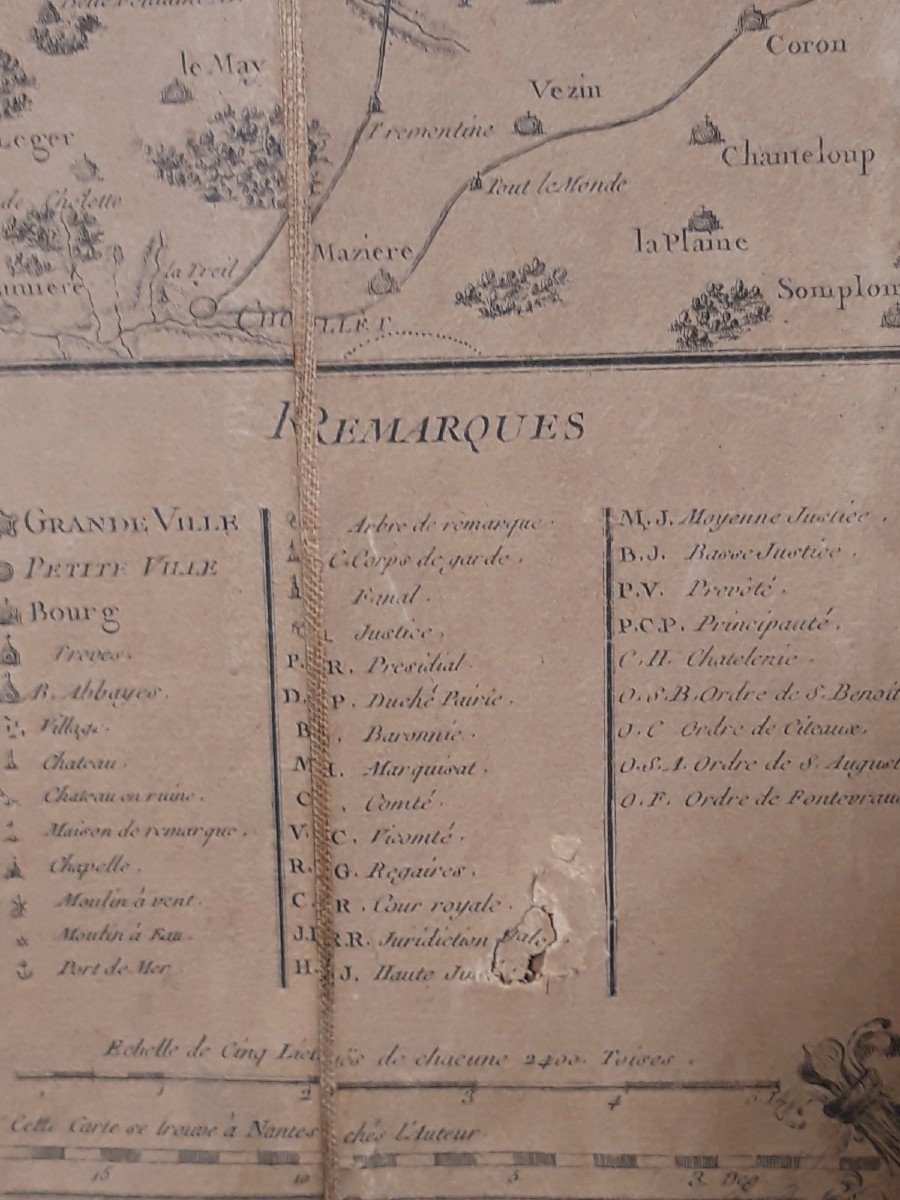 le May
Coron
Vezin
Leger
Tremontine
Chanteloup
de Cholette
Tout le Monde
Maziere
la Plaine
la Treil
Somploir
CHOLLET
REMARQUES
GRANDE VILLE
PETITE VILLE
Bourg
Treves.
B. Abbayes.
Village.
Chateau.
Chateau en ruine.
Maison de remarque.
Chapelle.
Moulin à vent.
Moulin à Eau.
Port de Mer
Arbre de remarque.
C. Corps de garde.
Fanal.
Justice.
P. R. Presidial.
D. P. Duché Pairie.
B. Baronnie.
M. Marquisat.
C. Comté.
V. C. Vicomté.
R. G. Regaires.
C. R. Cour royale.
J.R.R. Juridiction
H. J. Haute
M. J. Moyenne Justice.
B. J. Basse Justice.
P. V. Prevôté.
P.C.P. Principauté.
C. H. Chatelenie.
O.S.B. Ordre de S. Benoit
O. C Ordre de Citeaux.
O.S.A. Ordre de S. August
O. F. Ordre de Fontevrau
Echelle de Cinq Lieuës de chacune 2400 Toises.
1 2 3 4 5
Cette Carte se trouve à Nantes chés l'Auteur.
15 10 5 3. Deg